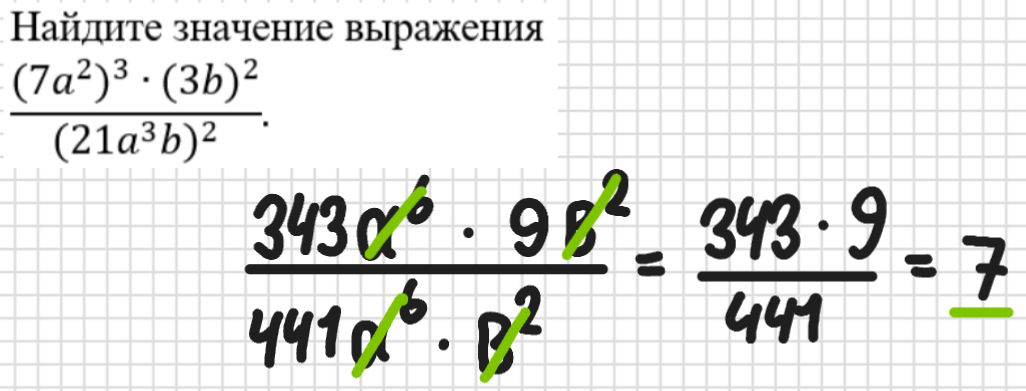 Найдите значение выражения
(7a²)³ · (3b)²
(21a³b)² .
343a⁶ · 9в² = 343 · 9 = 7
441a⁶ · в² 441